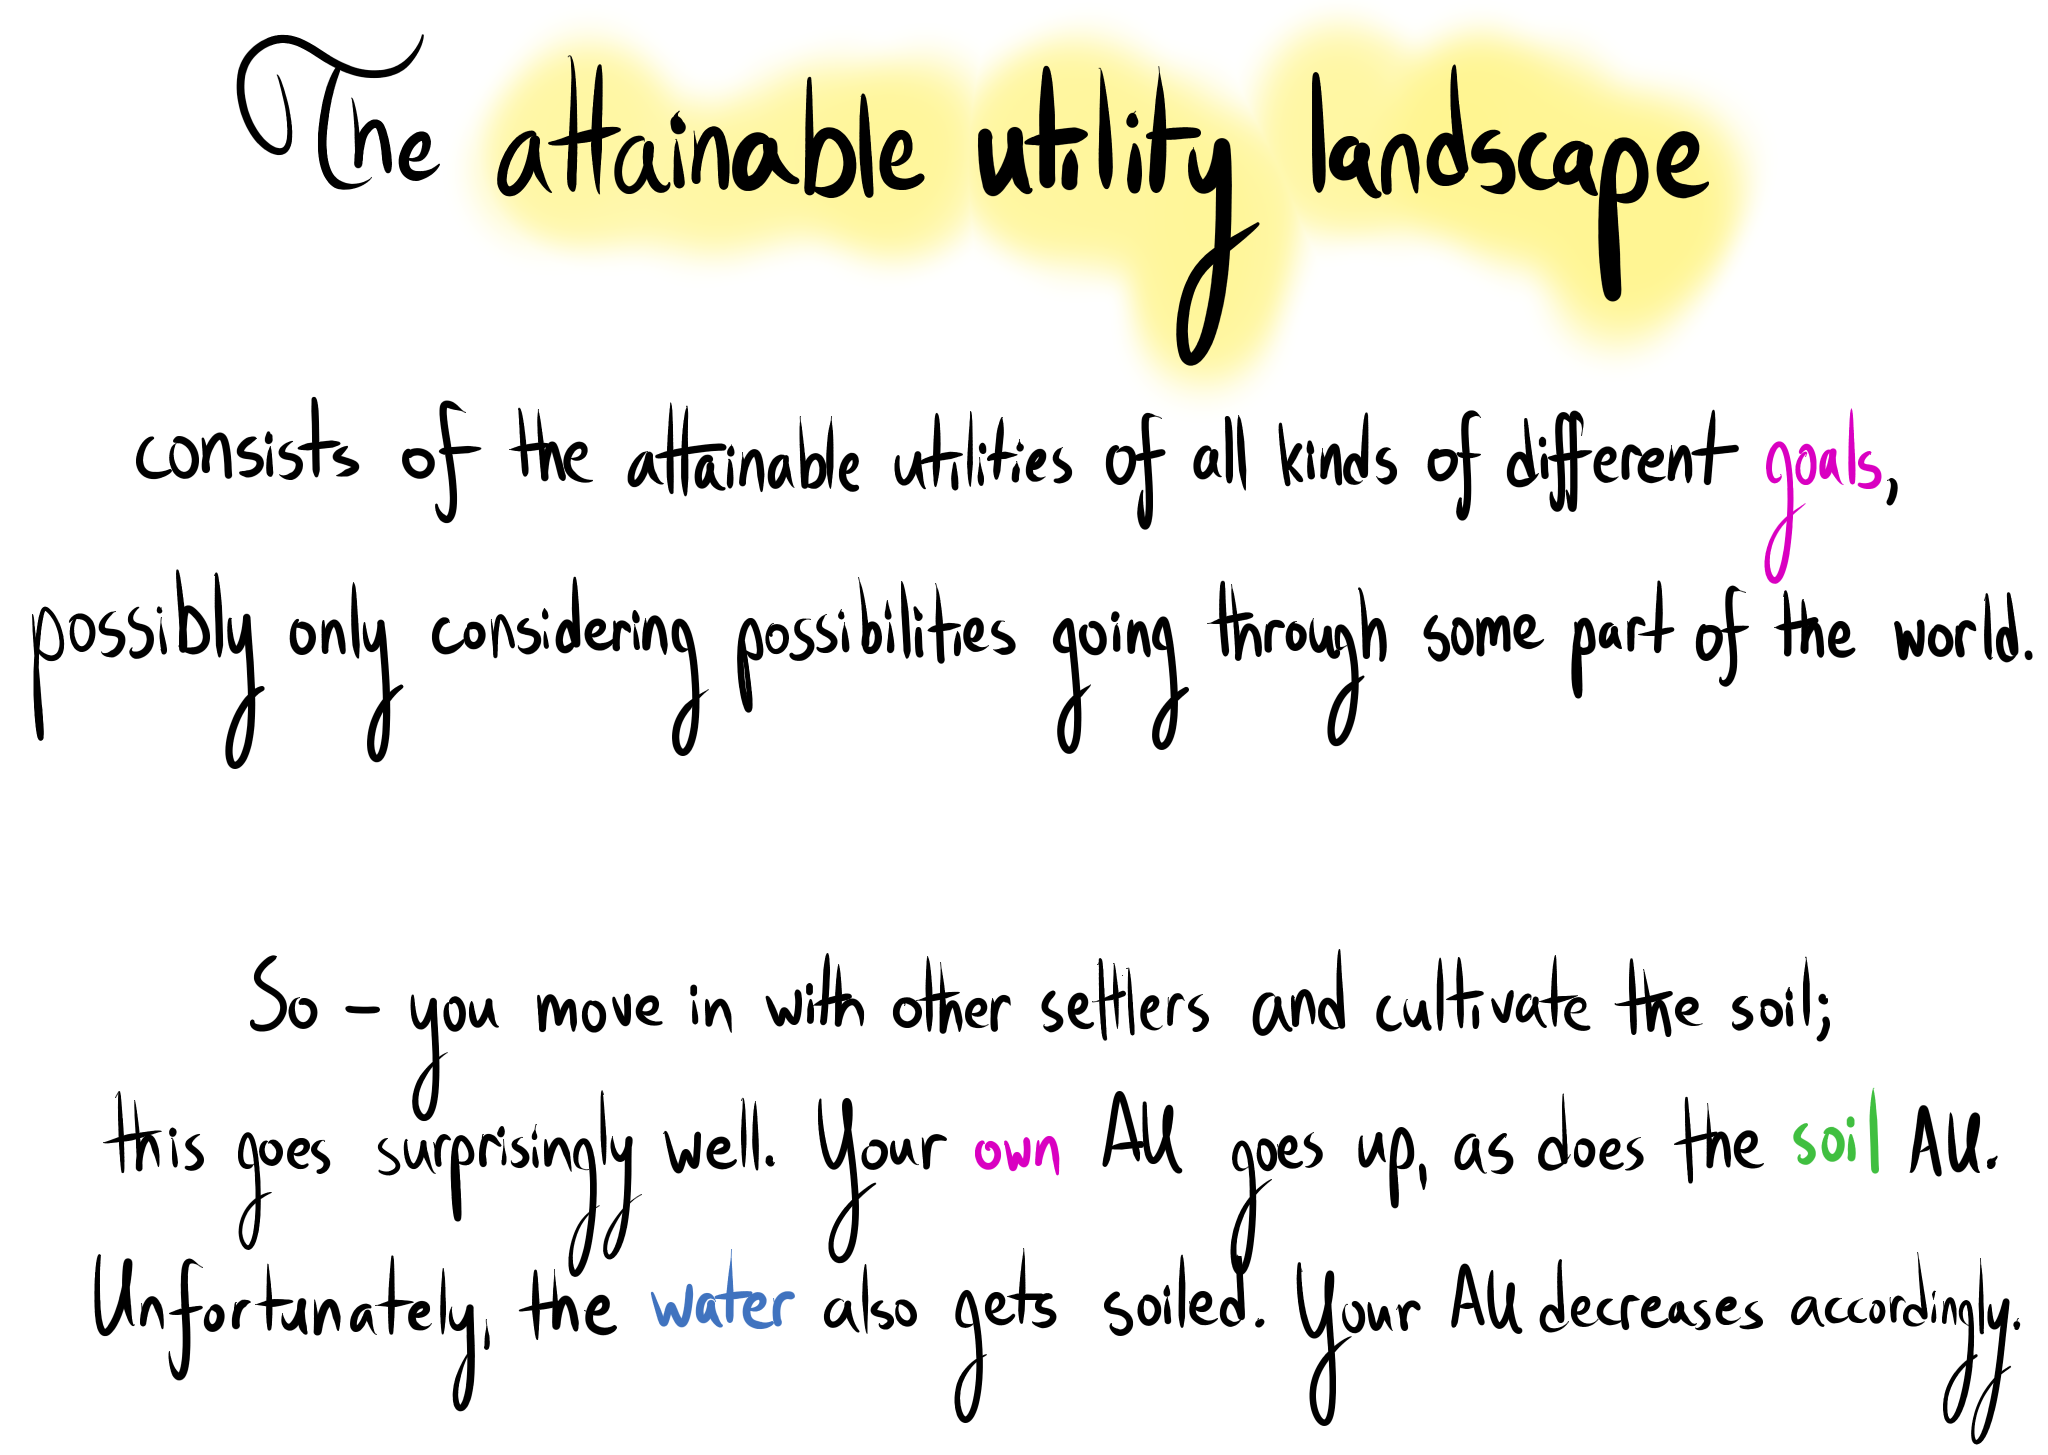 The attainable utility landscape
consists of the attainable utilities of all kinds of different goals,
possibly only considering possibilities going through some part of the world.
So – you move in with other settlers and cultivate the soil;
this goes surprisingly well. Your own AU goes up, as does the soil AU.
Unfortunately, the water also gets soiled. Your AU decreases accordingly.